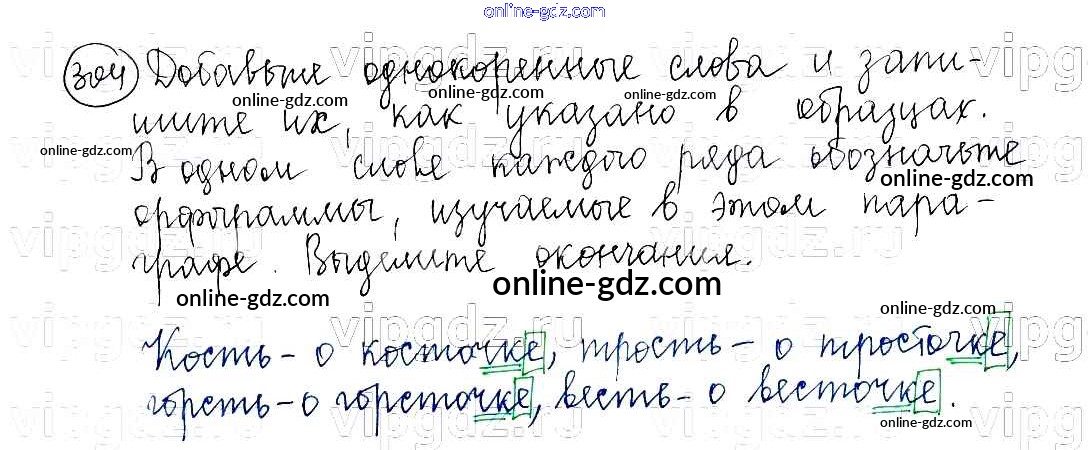 online-gdz.com
304 Добавьте однокоренные слова и запи-
online-gdz.com online-gdz.com online-gdz.com
шите их, как указано в образцах.
online-gdz.com online-gdz.com
В одном слове каждого ряда обозначьте
online-gdz.com
орфограммы, изучаемые в этом пара-
графе. Выделите окончания.
online-gdz.com online-gdz.com
online-gdz.com
Кость - о косточке, трость - о тросточке,
горсть - о горсточке, весть - о весточке.
online-gdz.com
vipgdz.ru